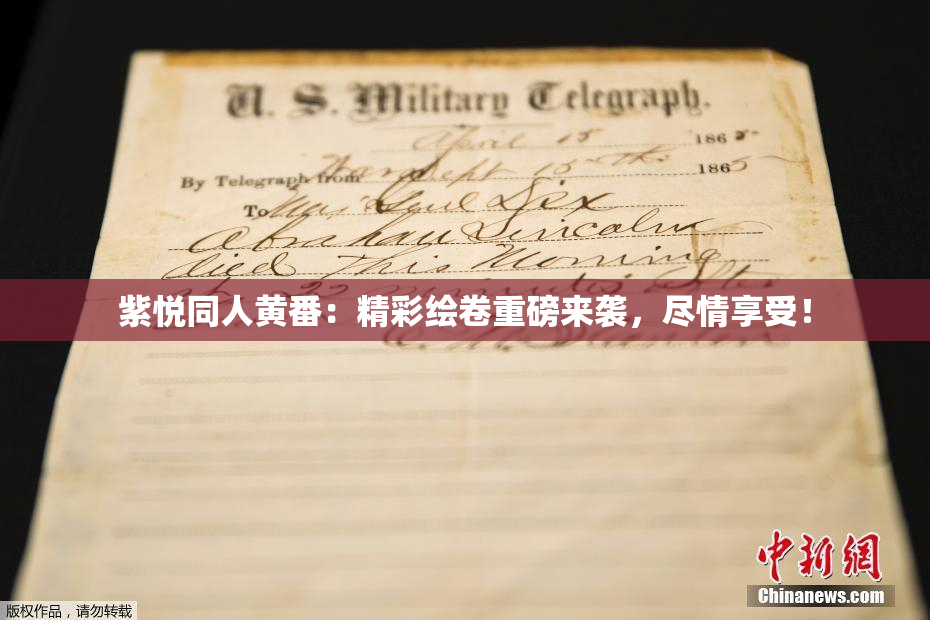 U. S. Military Telegraph.
April 15 1865
By Telegraph from War Dept 15th 1865
To Maj Genl Dix
Abraham Lincoln
died This Morning
at 22 minutes after
紫悦同人黄番：精彩绘卷重磅来袭，尽情享受！
E. M. Stanton
中新网
Chinanews.com
版权作品，请勿转载